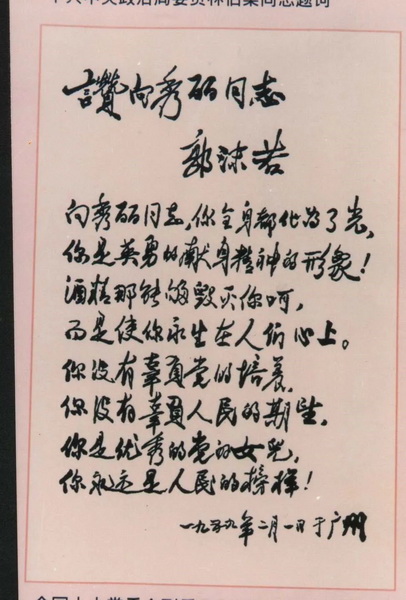 中央政治局委员林伯渠同志题词
讚向秀丽同志
郭沫若
向秀丽同志,你全身都化为了光,
你是英勇的献身精神的形象!
酒精那能够毁灭你呵,
而是使你永生在人们心上。
你没有辜负党的培养,
你没有辜负人民的期望,
你是优秀的党的女儿,
你永远是人民的榜样!
一九五九年二月一日于广州